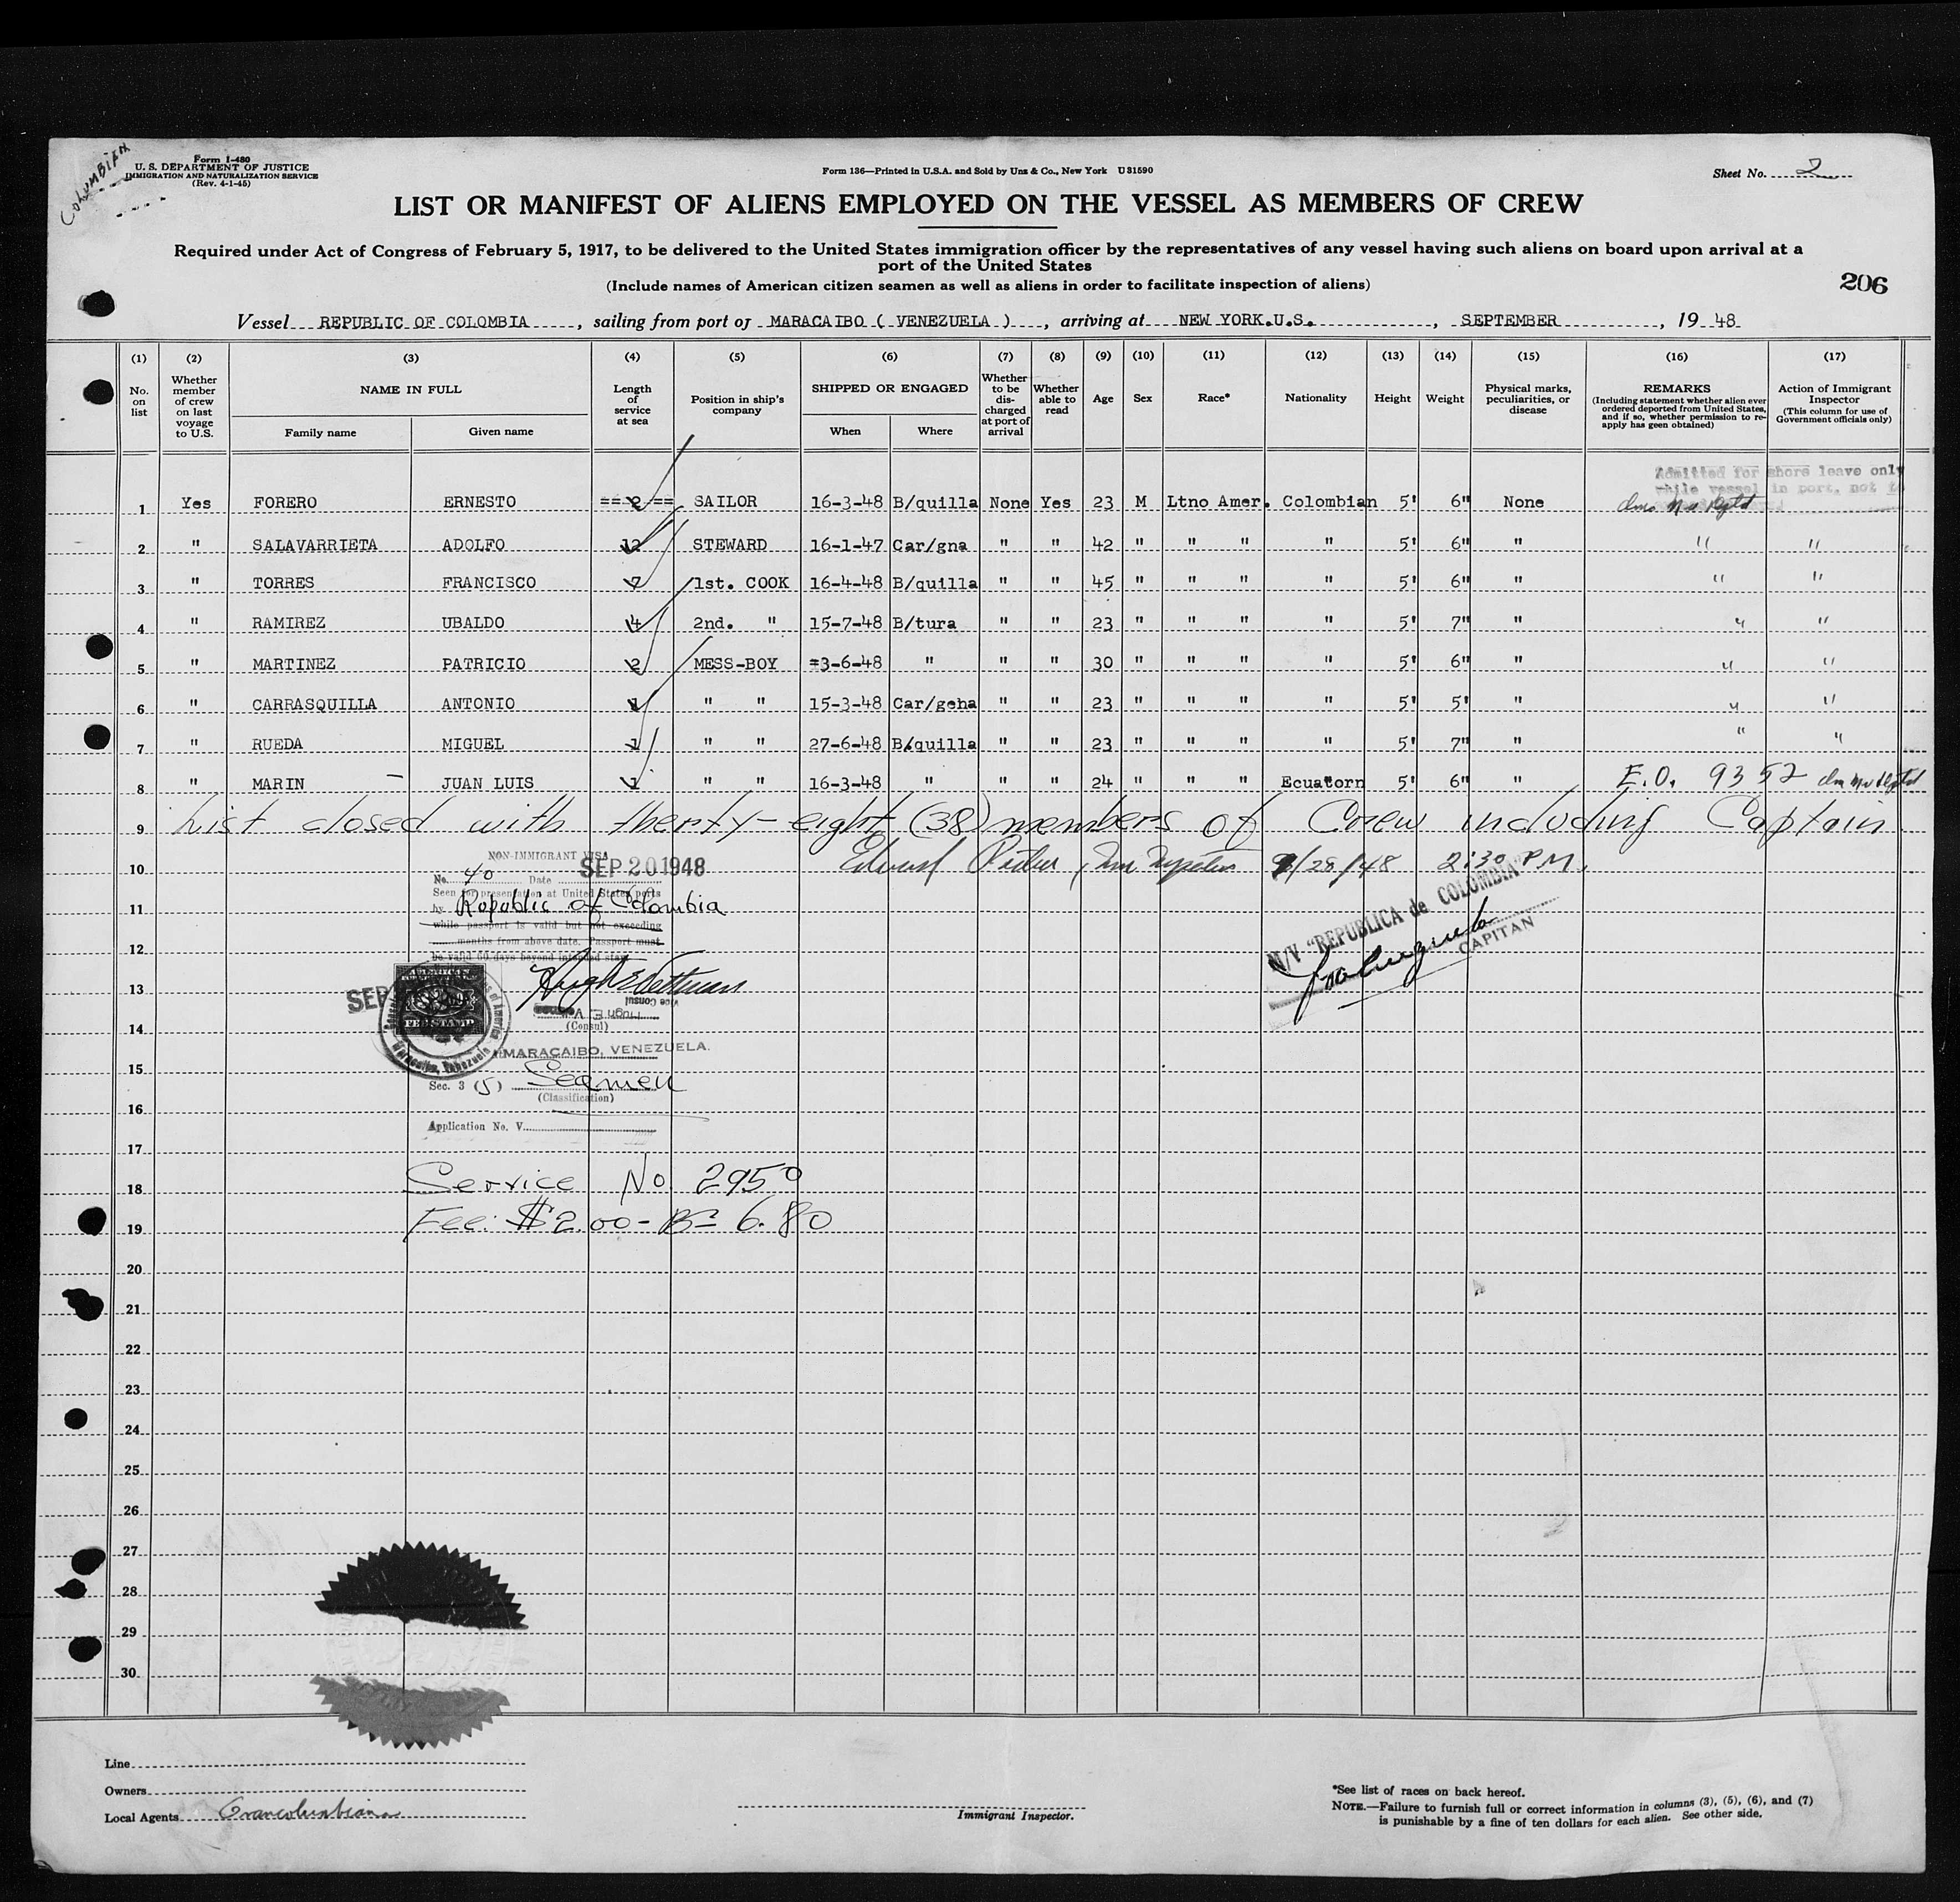 COLUMBIAN
Form I-480
U. S. DEPARTMENT OF JUSTICE
IMMIGRATION AND NATURALIZATION SERVICE
(Rev. 4-1-45)
Form 136—Printed in U.S.A. and Sold by Unz & Co., New York U31590
Sheet No. 2
LIST OR MANIFEST OF ALIENS EMPLOYED ON THE VESSEL AS MEMBERS OF CREW
Required under Act of Congress of February 5, 1917, to be delivered to the United States immigration officer by the representatives of any vessel having such aliens on board upon arrival at a
port of the United States
(Include names of American citizen seamen as well as aliens in order to facilitate inspection of aliens)
206
Vessel REPUBLIC OF COLOMBIA, sailing from port of MARACAIBO ( VENEZUELA ), arriving at NEW YORK.U.S., SEPTEMBER, 19 48
(1) (2) (3) (4) (5) (6) (7) (8) (9) (10) (11) (12) (13) (14) (15) (16) (17)
No. on list
Whether member of crew on last voyage to U.S.
NAME IN FULL
Family name Given name
Length of service at sea
Position in ship's company
SHIPPED OR ENGAGED
When Where
Whether to be discharged at port of arrival
Whether able to read
Age
Sex
Race*
Nationality
Height
Weight
Physical marks, peculiarities, or disease
REMARKS
(Including statement whether alien ever ordered deported from United States, and if so, whether permission to re-apply has geen obtained)
Action of Immigrant Inspector
(This column for use of Government officials only)
Admitted for shore leave only
while vessel in port, not to
1 Yes FORERO ERNESTO == 2 == SAILOR 16-3-48 B/quilla None Yes 23 M Ltno Amer. Colombian 5' 6" None
2 " SALAVARRIETA ADOLFO 12 STEWARD 16-1-47 Car/gna " " 42 " " " " 5' 6" " " "
3 " TORRES FRANCISCO 7 1st. COOK 16-4-48 B/quilla " " 45 " " " " 5' 6" " " "
4 " RAMIREZ UBALDO 4 2nd. " 15-7-48 B/tura " " 23 " " " " 5' 7" " " "
5 " MARTINEZ PATRICIO 2 MESS-BOY =3-6-48 " " " 30 " " " " 5' 6" " " "
6 " CARRASQUILLA ANTONIO 1 " " 15-3-48 Car/geha " " 23 " " " " 5' 5' " " "
7 " RUEDA MIGUEL 1 " " 27-6-48 B/quilla " " 23 " " " " 5' 7" " " "
8 " MARIN - JUAN LUIS 1 " " 16-3-48 " " " 24 " " " Ecuatorn 5' 6" " E.O. 9352
9 List closed with therty-eight (38) members of Crew including Captain
10 9/28/48 2:30 P.M.
NON-IMMIGRANT VISA
No. 40 Date SEP 20 1948
Seen for presentation at United States ports
11 by Republic of Colombia
while passport is valid but not exceeding
12 months from above date. Passport must
be valid 60 days beyond intended stay
M/V. "REPUBLICA de COLOMBIA"
CAPITAN
13
SEP
AMERICAN
FEE STAMP
Vice Consul
Hugh E.
14 (Consul)
MARACAIBO, VENEZUELA.
Maracaibo, Venezuela
15 Sec. 3 (5) Seamen
(Classification)
16
Application No. V.
17
18 Service No. 2950
19 Fee: $2.00 - Bs 6.80
20
21
22
23
24
25
26
27
28
29
30
Line
Owners
Local Agents Grancolombiana
Immigrant Inspector.
*See list of races on back hereof.
NOTE.—Failure to furnish full or correct information in columns (3), (5), (6), and (7)
is punishable by a fine of ten dollars for each alien. See other side.